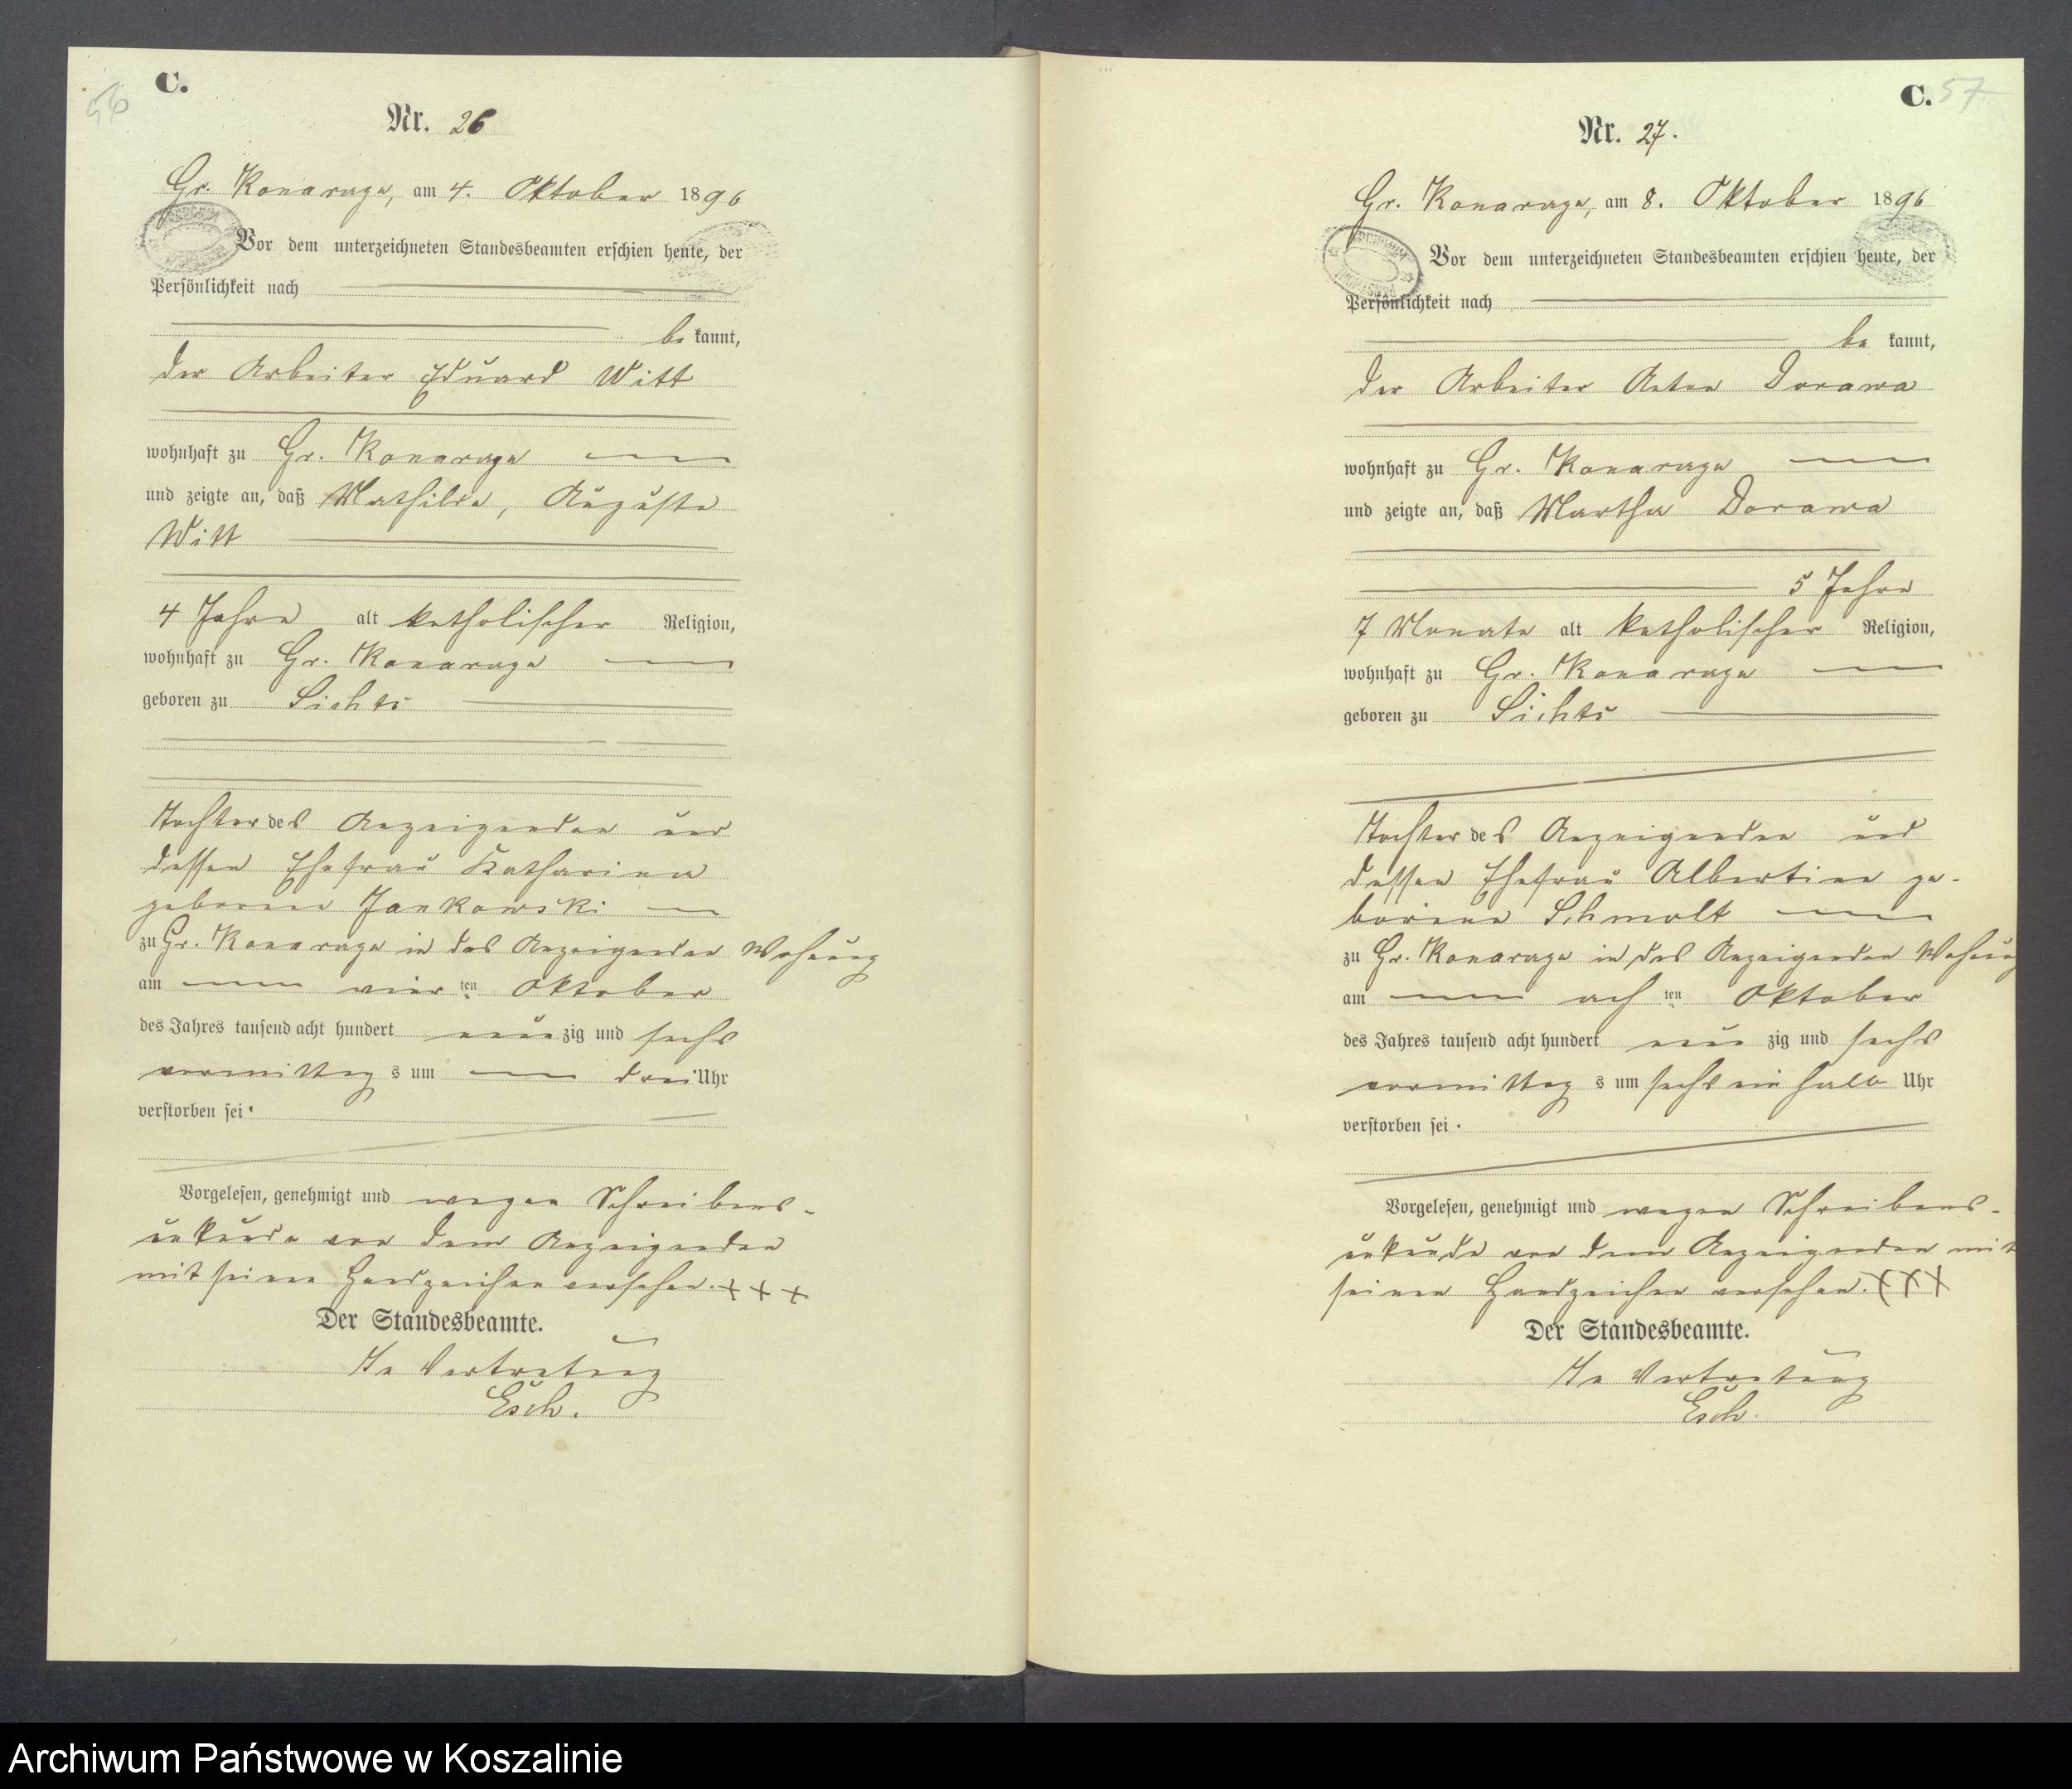 56
C.
Nr. 26
Gr. Konarzyn, am 4. Oktober 1896
Vor dem unterzeichneten Standesbeamten erschien heute, der
Persönlichkeit nach
be kannt,
der Arbeiter Eduard Witt
wohnhaft zu Gr. Konarzyn
und zeigte an, daß Mathilde, Auguste
Witt
4 Jahre alt katholischer Religion,
wohnhaft zu Gr. Konarzyn
geboren zu Sichts
Tochter des Anzeigenden und
dessen Ehefrau Katharina
geborene Jankowski
zu Gr. Konarzyn in des Anzeigenden Wohnung
am vier ten Oktober
des Jahres tausend acht hundert neun zig und sechs
vormittag s um drei Uhr
verstorben sei.
Vorgelesen, genehmigt und wegen Schreibens-
unkunde von dem Anzeigenden
mit seinen Handzeichen versehen. + + +
Der Standesbeamte.
In Vertretung
Esch.
C. 57
Nr. 27.
Gr. Konarzyn, am 8. Oktober 1896
Vor dem unterzeichneten Standesbeamten erschien heute, der
Persönlichkeit nach
be kannt,
der Arbeiter Anton Dorawa
wohnhaft zu Gr. Konarzyn
und zeigte an, daß Martha Dorawa
5 Jahre
7 Monate alt katholischer Religion,
wohnhaft zu Gr. Konarzyn
geboren zu Sichts
Tochter des Anzeigenden und
dessen Ehefrau Albertine ge-
borene Schmolt
zu Gr. Konarzyn in des Anzeigenden Wohnung
am ach ten Oktober
des Jahres tausend acht hundert neun zig und sechs
vormittag s um sechs ein halb Uhr
verstorben sei.
Vorgelesen, genehmigt und wegen Schreibens-
unkunde von dem Anzeigenden mit
seinen Handzeichen versehen. + + +
Der Standesbeamte.
In Vertretung
Esch.
Archiwum Państwowe w Koszalinie